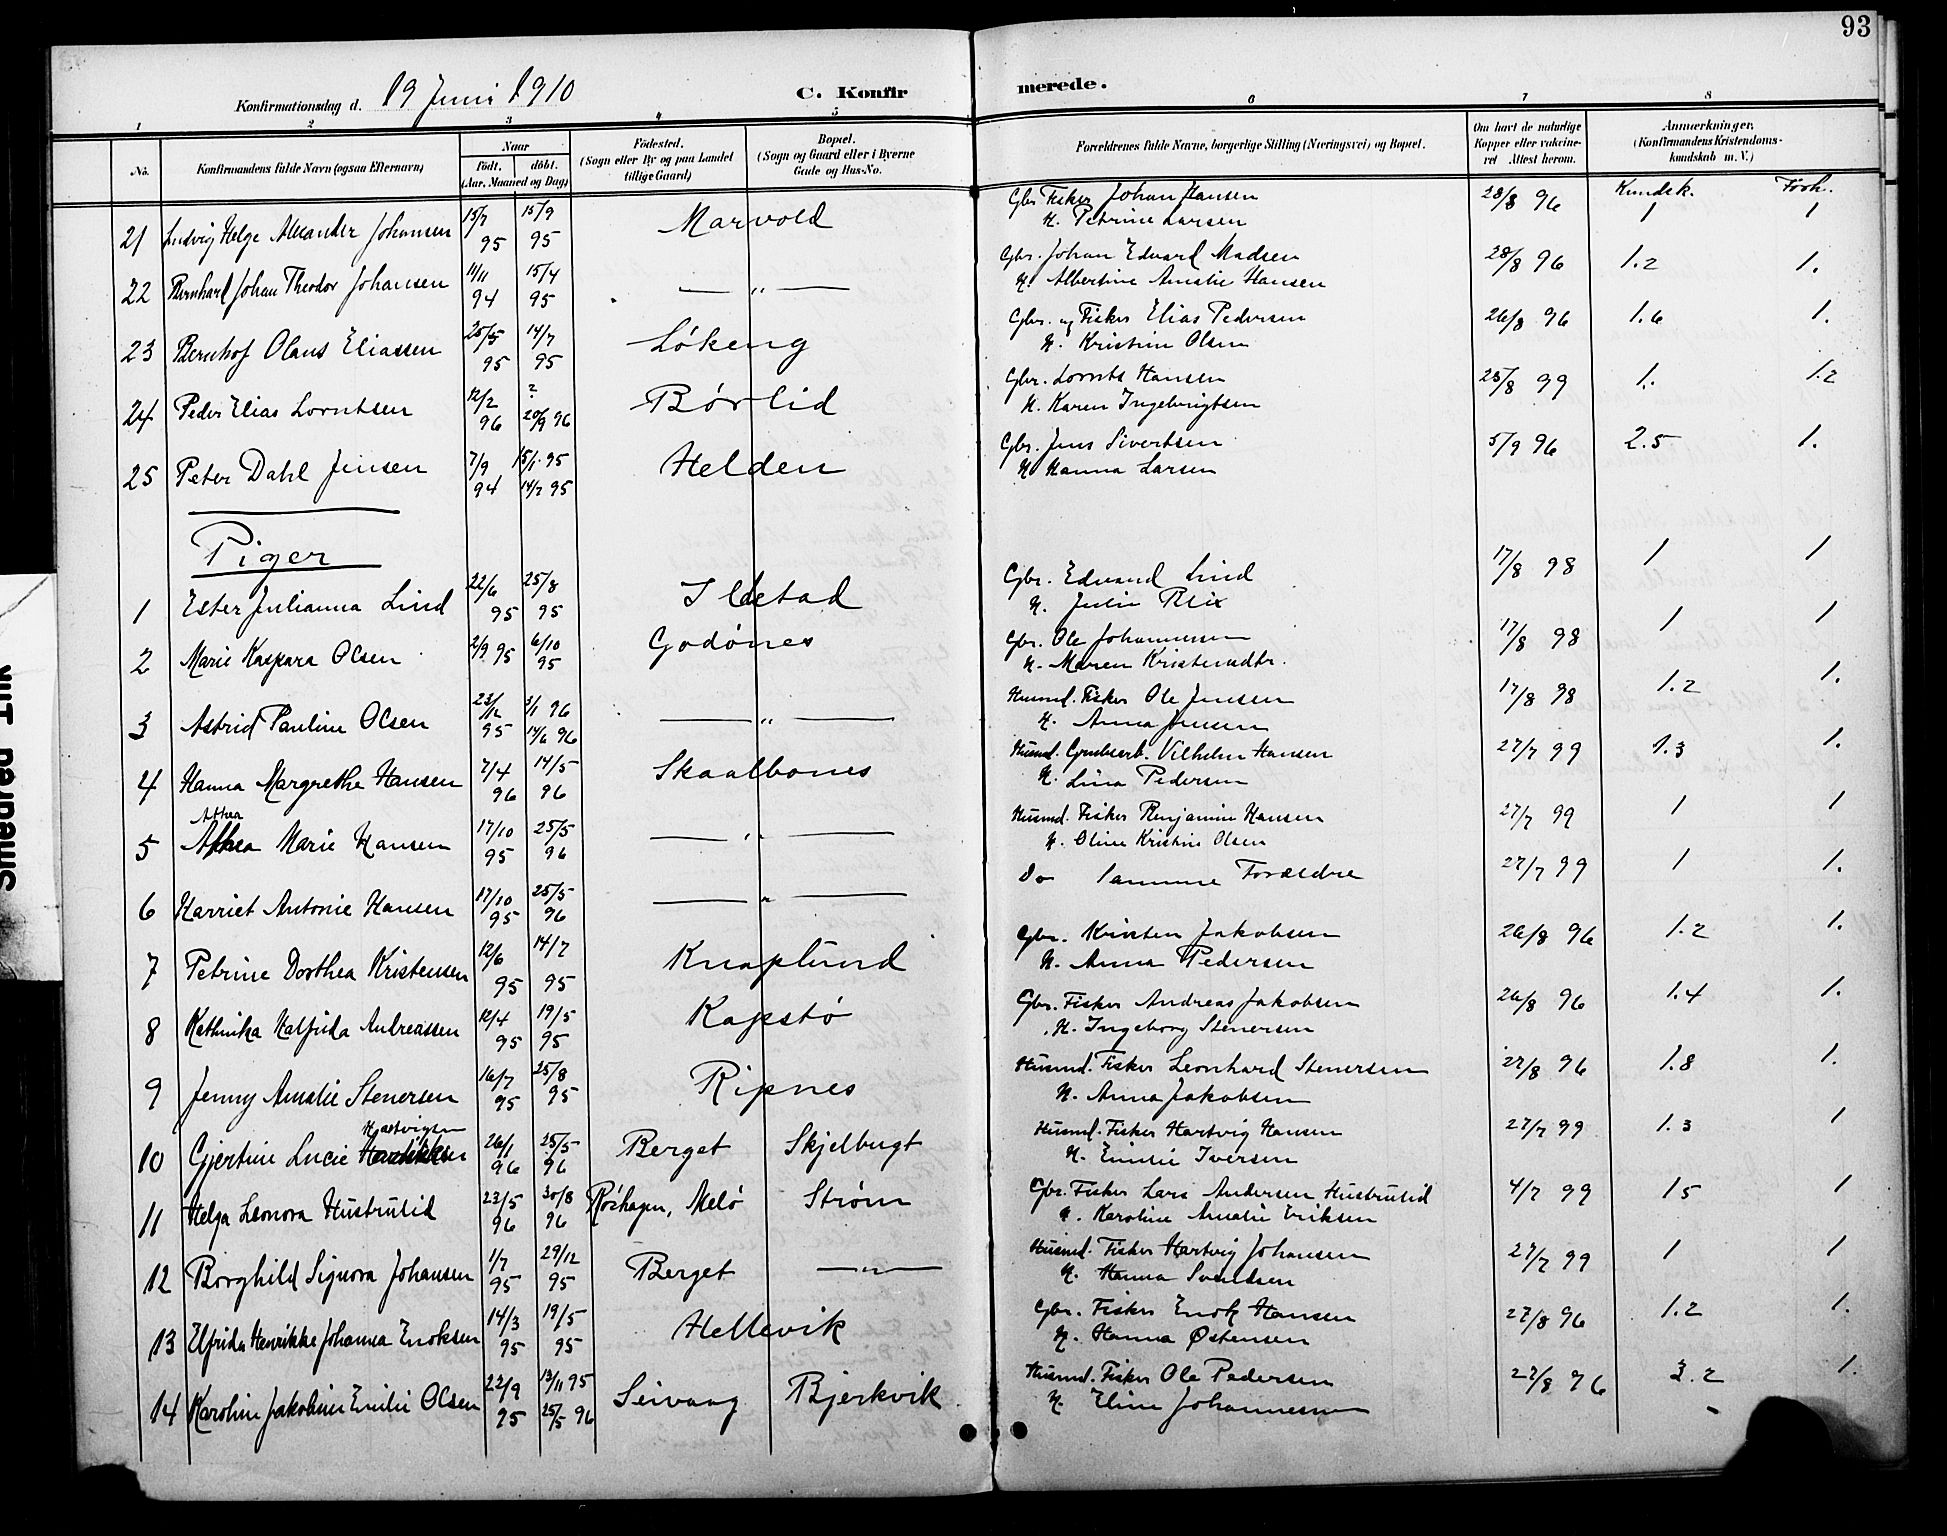 93
Konfirmationsdag d. 19 Juni 1910 C. Konfirmerede.
1 2 3 4 5 6 7 8
No. Konfirmandens fulde Navn (ogsaa Efternavn) Naar födt. döbt. (Aar, Maaned og Dag) Födested. (Sogn eller By og paa Landet tillige Gaard) Bopæl. (Sogn og Gaard eller i Byerne Gade og Hus-No. Forældrenes fulde Navne, borgerlige Stilling (Næringsvei) og Bopæl. Om havt de naturlige Kopper eller vakcineret Attest herom. Anmærkninger. (Konfirmandens Kristendomskundskab m. V.)
Kundsk. Forh.
21 Ludvig Helge Alexander Johansen 15/7 95 15/9 95 Marvold Gbr. Fisker Johan Hansen 28/8 96 1 1
H. Petrine Larsen
22 Bernhard Johan Theodor Johansen 11/11 94 15/4 95 — „ — Gbr. Johan Edvard Madsen 28/8 96 1.2 1.
H. Albertine Amalie Hansen
23 Bernhof Olaus Eliassen 25/5 95 14/7 95 Løkeng Gbr. og Fisker Elias Pedersen 26/8 96 1.6 1.
H. Kristine Olsen
24 Peder Elias Lorntsen 12/2 96 ? 20/9 96 Børlid Gbr. Lornts Hansen 25/8 99 1. 1.2
H. Karen Ingebrigtsen
25 Peter Dahl Jensen 7/9 94 15/1 95 14/7 95 Helden Gbr. Jens Sivertsen 5/9 96 2.5 1.
H. Hanna Larsen
Piger
1 Ester Julianna Lind 22/6 95 25/8 95 Ildstad Gbr. Edvard Lind 17/8 98 1 1
H. Julie Blix
2 Marie Kaspara Olsen 2/9 95 6/10 95 Godønes Gbr. Ole Johannessen 17/8 98 1 1
H. Maren Kristensdtr.
3 Astrid Pauline Olsen 23/12 95 3/1 96 14/6 96 — „ — Husmd. Fisker Ole Jensen 17/8 98 1.2 1.
H. Anna Jensen
4 Hanna Margrethe Hansen 7/4 96 14/5 96 Skaalbones Husmd. Grubearb. Vilhelm Hansen 27/7 99 1.3 1.
H. Lina Pedersen
Althea
5 Althea Marie Hansen 17/10 95 25/5 96 — „ — Husmd. Fisker Benjamin Hansen 27/7 99 1 1
H. Oline Kristine Olsen
6 Harriet Antonie Hansen 17/10 95 25/5 96 — „ — Do Samme Forældre 27/7 99 1 1.
7 Petrine Dorthea Kristensen 12/6 95 14/7 95 Knaplund Gbr. Kristen Jakobsen 26/8 96 1.2 1.
H. Anna Pedersen
8 Kathinka Halfrida Andreassen 12/4 95 19/5 95 Kapstø Gbr. Fisker Andreas Jakobsen 26/8 96 1.4 1.
H. Ingeborg Stenersen
9 Jenny Amalie Stenersen 16/7 95 25/8 95 Ripnes Husmd. Fisker Leonhard Stenersen 27/8 96 1.8 1.
H. Anna Jakobsen
Hartvigsen
10 Gjertine Lucie 26/1 96 25/5 96 Berget Skjelbugt Husmd. Fisker Hartvig Hansen 27/7 99 1.3 1
H. Emilie Iversen
11 Helga Leonora Hustrulid 23/5 96 30/8 96 Røshagen, Melø Strøm Gbr. Fisker Lars Andersen Hustrulid 4/7 99 1 5 1
H. Karoline Amalie Eriksen
12 Borghild Signora Johansen 1/7 95 29/12 95 Berget — „ — Husmd. Fisker Hartvig Johansen 27/7 99 1 1
H. Hanna Svendsen
13 Elfrida Henrikke Johanna Enoksen 14/3 95 19/5 95 Hellevik Gbr. Fisker Enok Hansen 27/8 96 1.2 1.
H. Hanna Østensen
14 Karoline Jakobine Emilie Olsen 22/9 95 13/11 95 25/5 96 Seivaag Bjerkvik Husmd. Fisker Ole Pedersen 27/8 96 3.2 1.
H. Eline Johannessen